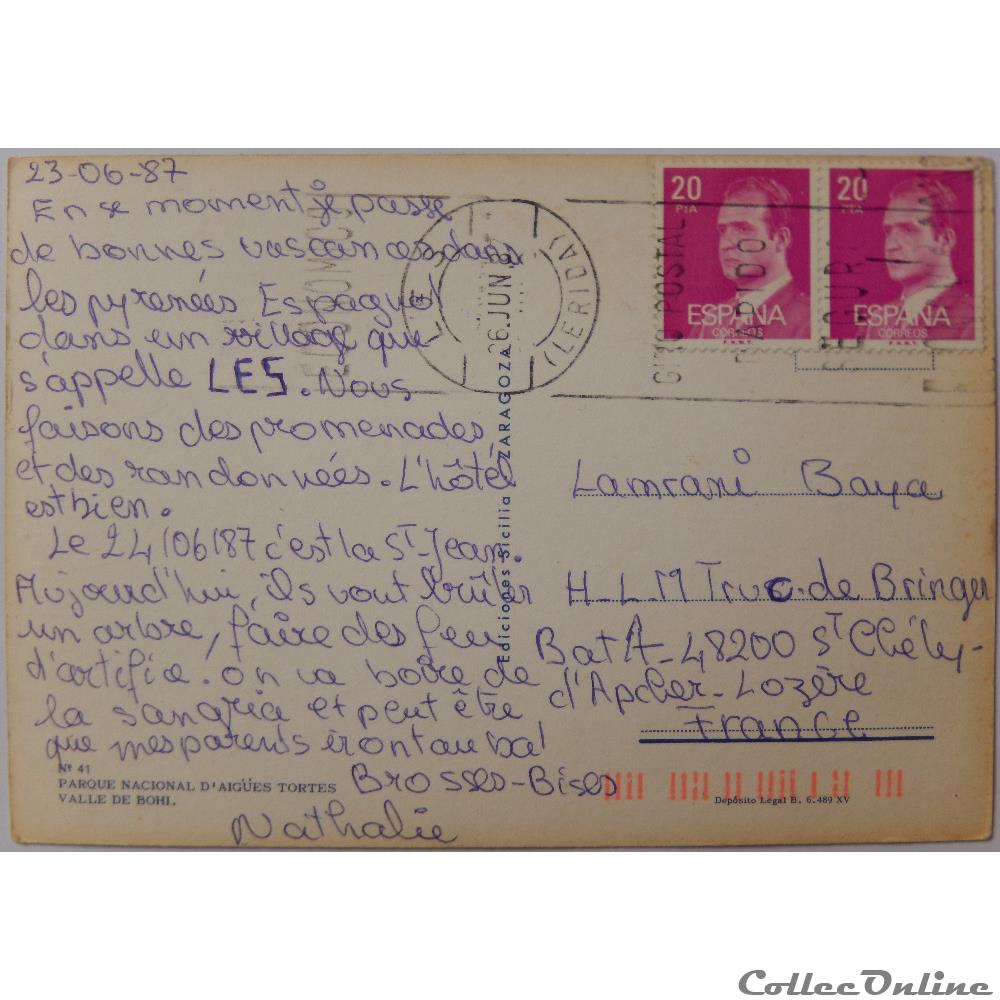 23-06-87
En se moment je passe
de bonnes vascances dans
les pyrenées Espagnol
dans un village qui
s'appelle LES. Nous
faisons des promenades
et des randonnées. L'hôtel
est bien.
Le 24/06/87 c'est la St-Jean.
Aujourd'hui, ils vont brûler
un arbre, faire des feu
d'artifice. on va boire de
la sangria et peut être
que mes parents iront au bal
Brosses-Bises
Nathalie
Nº 41
PARQUE NACIONAL D'AIGÜES TORTES
VALLE DE BOHI.
Ediciones Sicilia ZARAGOZA
26.JUN.87
(LERIDA)
GIRO POSTAL
20
PTA
ESPAÑA
CORREOS
F.N.M.T.
20
PTA
ESPAÑA
CORREOS
F.N.M.T.
Lamrani Baya
H-L-M Truc-de Bringer
Bat A-48200 St Chély-
d'Apcher-Lozère
France
Depósito Legal B. 6.489 XV
CollecOnline